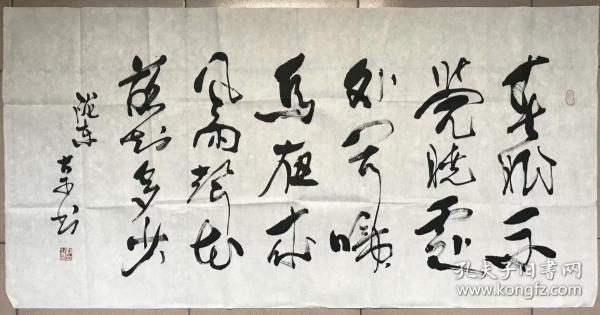 春眠不
覺曉處
处闻啼
鳥夜来
风雨聲花
落知多少
陇东
书
孔夫子旧书网
www.kongfz.com